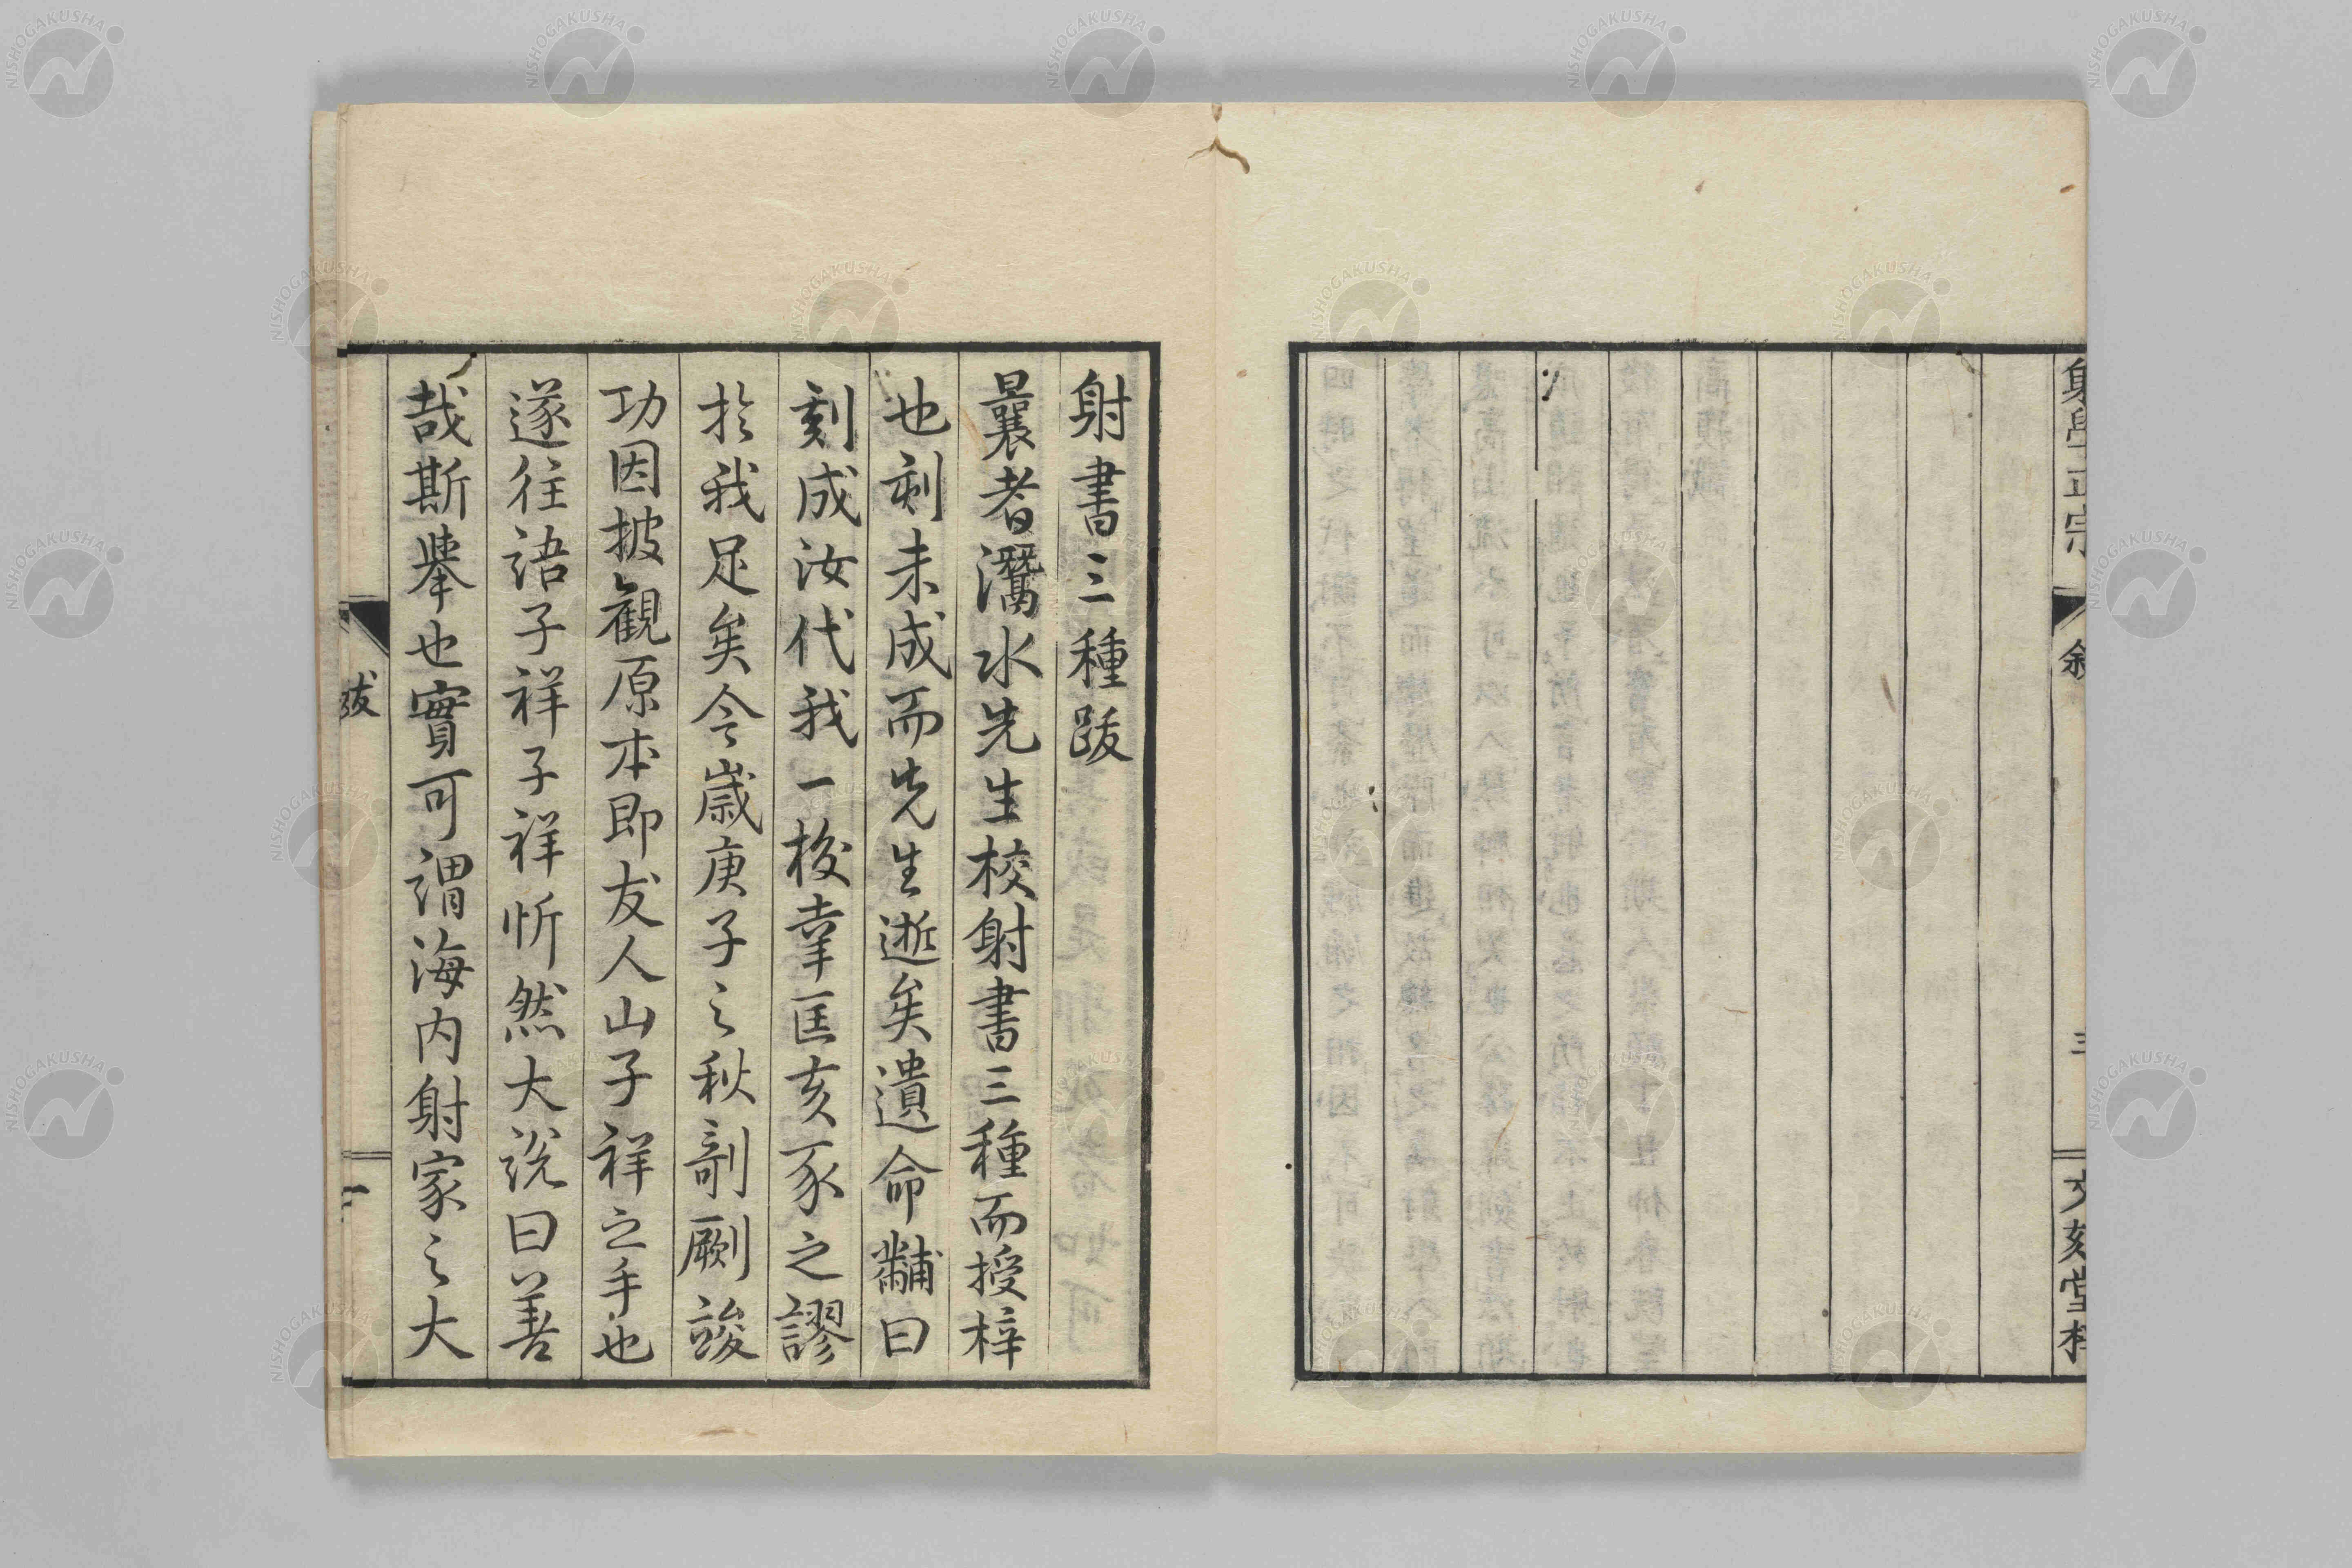 射學正宗
敘
三
文刻堂梓
射書三種跋
曩者灊水先生校射書三種而授梓
也刻未成而先生逝矣遺命黼曰
刻成汝代我一挍幸匡亥豕之謬
於我足矣今歲庚子之秋剞劂竣
功因披觀原本即友人山子祥之手也
遂往語子祥子祥忻然大說曰善
哉斯舉也實可謂海内射家之大
跋
一
NISHOGAKUSHA